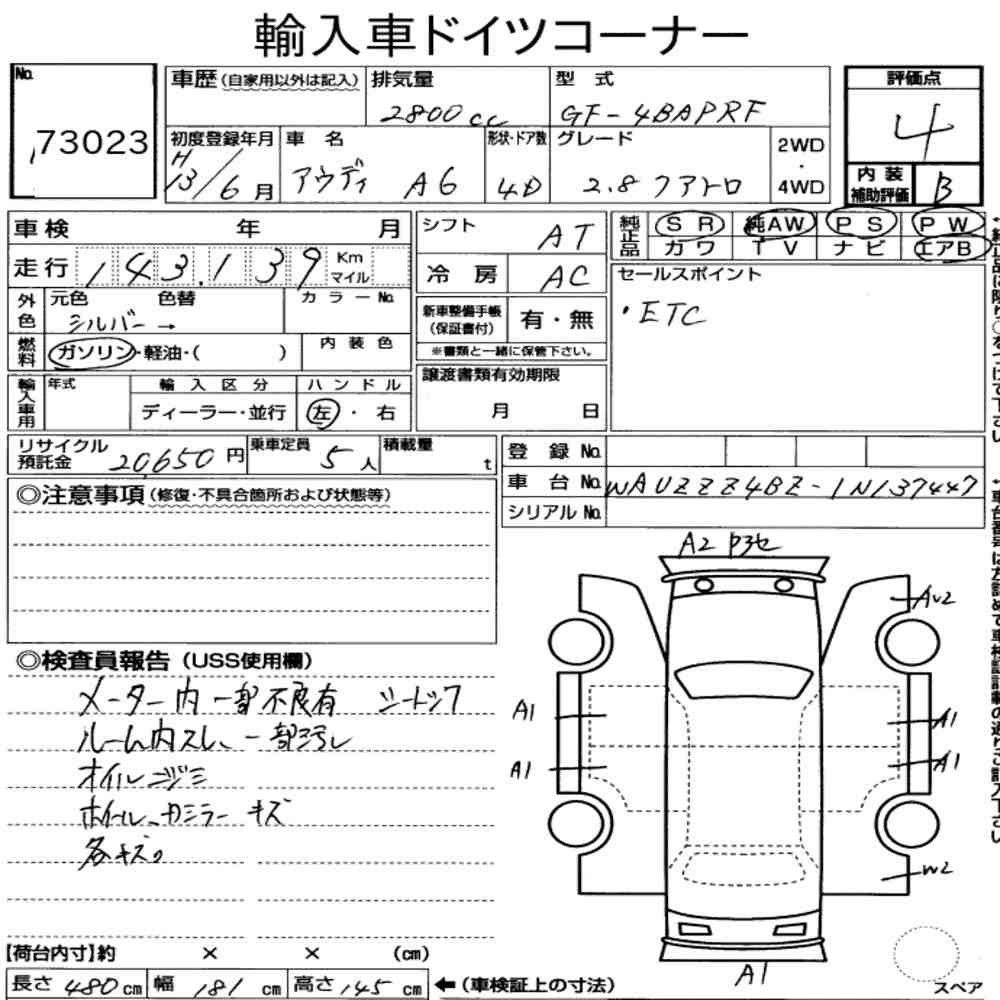 輸入車ドイツコーナー
No. 73023
車歴(自家用以外は記入) 排気量 2800cc 型式 GF-4BAPRF 評価点 4
初度登録年月 H13/6月 車名 アウディ A6 形状・ドア数 4D グレード 2.8クアトロ 2WD・4WD 内装補助評価 B
車検 年 月 シフト AT 純正品 SR 純AW PS PW
カワ TV ナビ エアB
走行 143,139 Km マイル 冷房 AC セールスポイント
・ETC
外色 元色 シルバー→ 色替 カラーNo. 新車整備手帳(保証書付) 有・無
燃料 ガソリン・軽油・( ) 内装色 ※書類と一緒に保管下さい。
輸入車用 年式 輸入区分 ハンドル 譲渡書類有効期限
ディーラー・並行 左・右 月 日
リサイクル預託金 20,650円 乗車定員 5人 積載量 t 登録No.
車台No. WAUZZZ4BZ-1N137447
シリアルNo.
◎注意事項(修復・不具合箇所および状態等)
A2
AU2
◎検査員報告(USS使用欄)
メーター内一部不良有
ルーム内スレ、一部汚レ
オイルニジミ
ホイール、
キズ
各キズ。
A1 A1
A1 A1
W2
A1
スペア
【荷台内寸】約 × × (cm)
長さ 480cm 幅 181cm 高さ 145cm ←(車検証上の寸法)